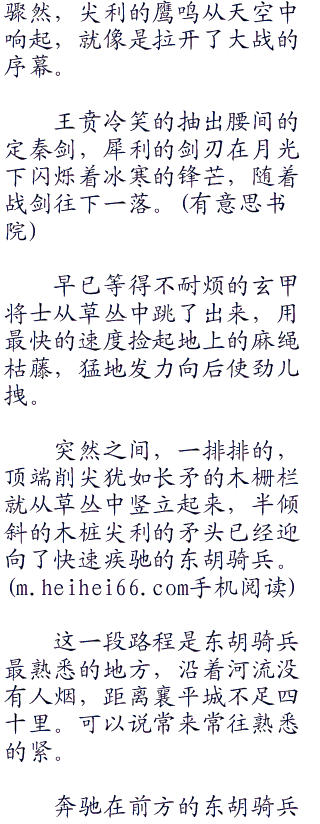 骤然，尖利的鹰鸣从天空中
响起，就像是拉开了大战的
序幕。
王贲冷笑的抽出腰间的
定秦剑，犀利的剑刃在月光
下闪烁着冰寒的锋芒，随着
战剑往下一落。(有意思书
院)
早已等得不耐烦的玄甲
将士从草丛中跳了出来，用
最快的速度捡起地上的麻绳
枯藤，猛地发力向后使劲儿
拽。
突然之间，一排排的，
顶端削尖犹如长矛的木栅栏
就从草丛中竖立起来，半倾
斜的木桩尖利的矛头已经迎
向了快速疾驰的东胡骑兵。
(m.heihei66.com手机阅读)
这一段路程是东胡骑兵
最熟悉的地方，沿着河流没
有人烟，距离襄平城不足四
十里。可以说常来常往熟悉
的紧。
奔驰在前方的东胡骑兵